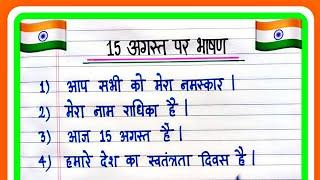 15 अगस्त पर भाषण
1) आप सभी को मेरा नमस्कार |
2) मेरा नाम राधिका है |
3) आज 15 अगस्त है |
4) हमारे देश का स्वतंत्रता दिवस है |